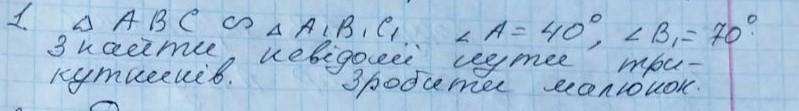 1 △ ABC ∽ △ A₁B₁C₁ ∠A = 40°, ∠B₁ = 70°.
Знайти невідомі кути три-
кутників. Зробити малюнок.